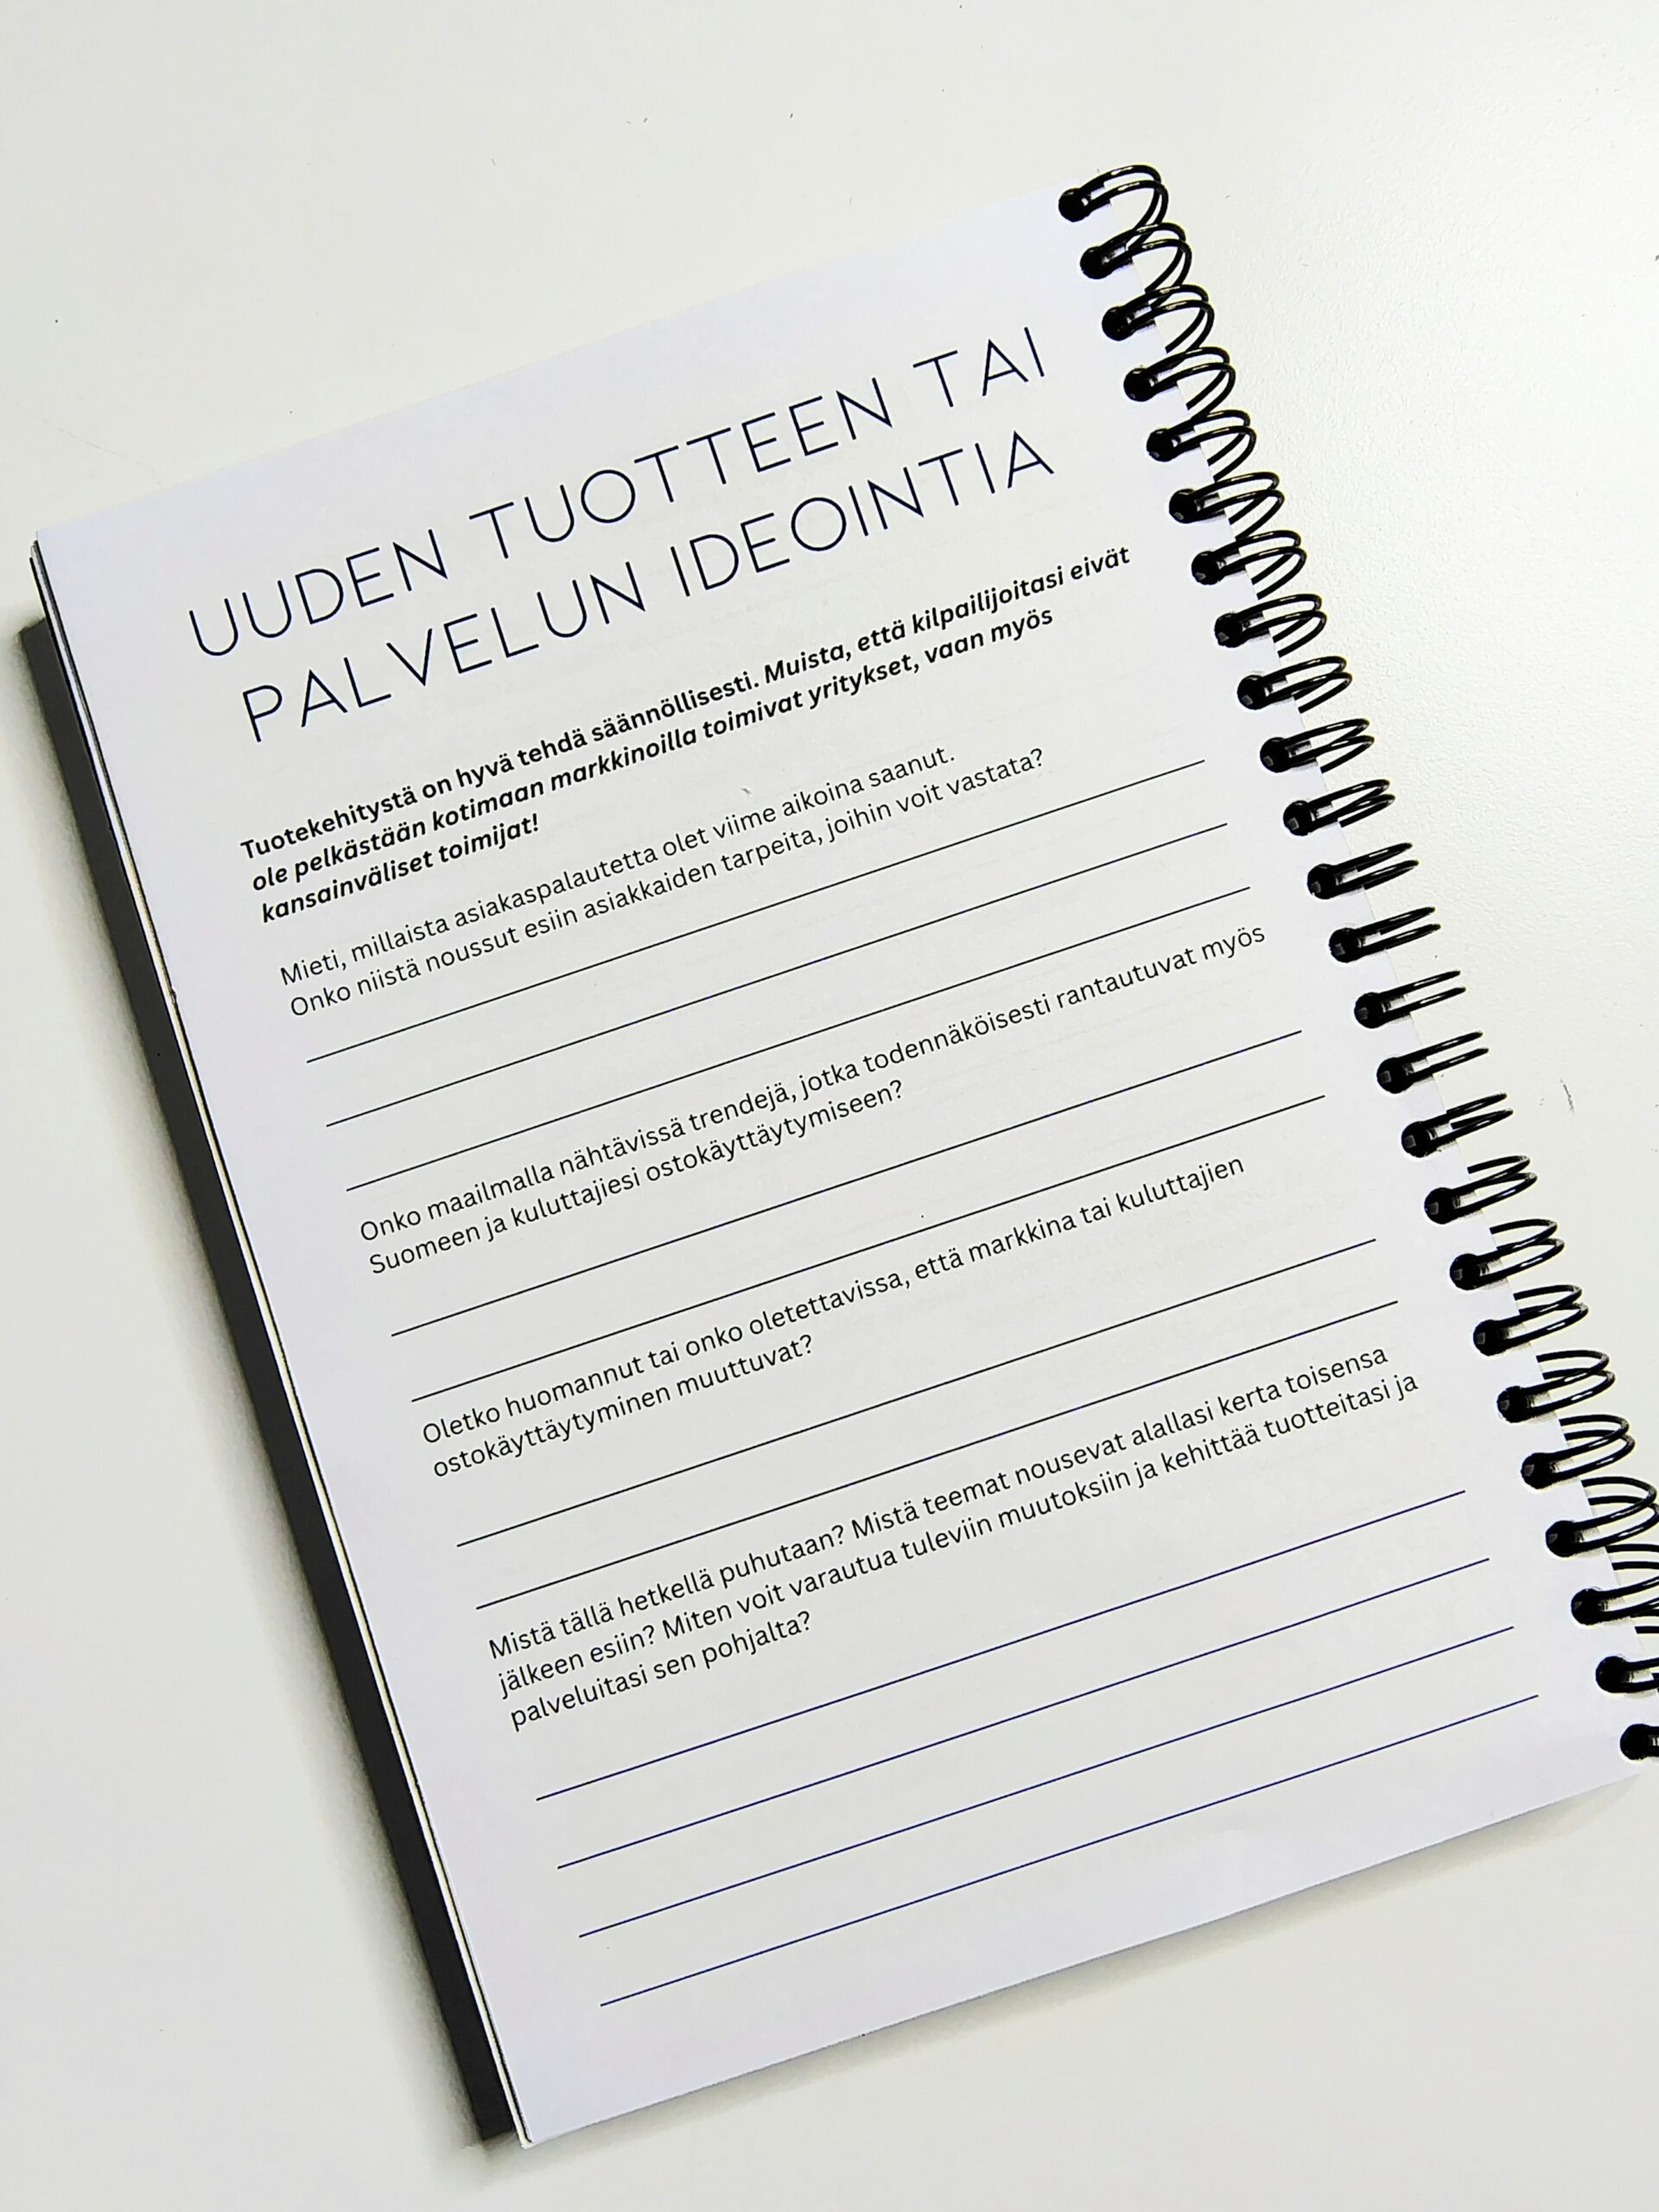 UUDEN TUOTTEEN TAI
PALVELUN IDEOINTIA
Tuotekehitystä on hyvä tehdä säännöllisesti. Muista, että kilpailijoitasi eivät
ole pelkästään kotimaan markkinoilla toimivat yritykset, vaan myös
kansainväliset toimijat!
Mieti, millaista asiakaspalautetta olet viime aikoina saanut.
Onko niistä noussut esiin asiakkaiden tarpeita, joihin voit vastata?
Onko maailmalla nähtävissä trendejä, jotka todennäköisesti rantautuvat myös
Suomeen ja kuluttajiesi ostokäyttäytymiseen?
Oletko huomannut tai onko oletettavissa, että markkina tai kuluttajien
ostokäyttäytyminen muuttuvat?
Mistä tällä hetkellä puhutaan? Mistä teemat nousevat alallasi kerta toisensa
jälkeen esiin? Miten voit varautua tuleviin muutoksiin ja kehittää tuotteitasi ja
palveluitasi sen pohjalta?